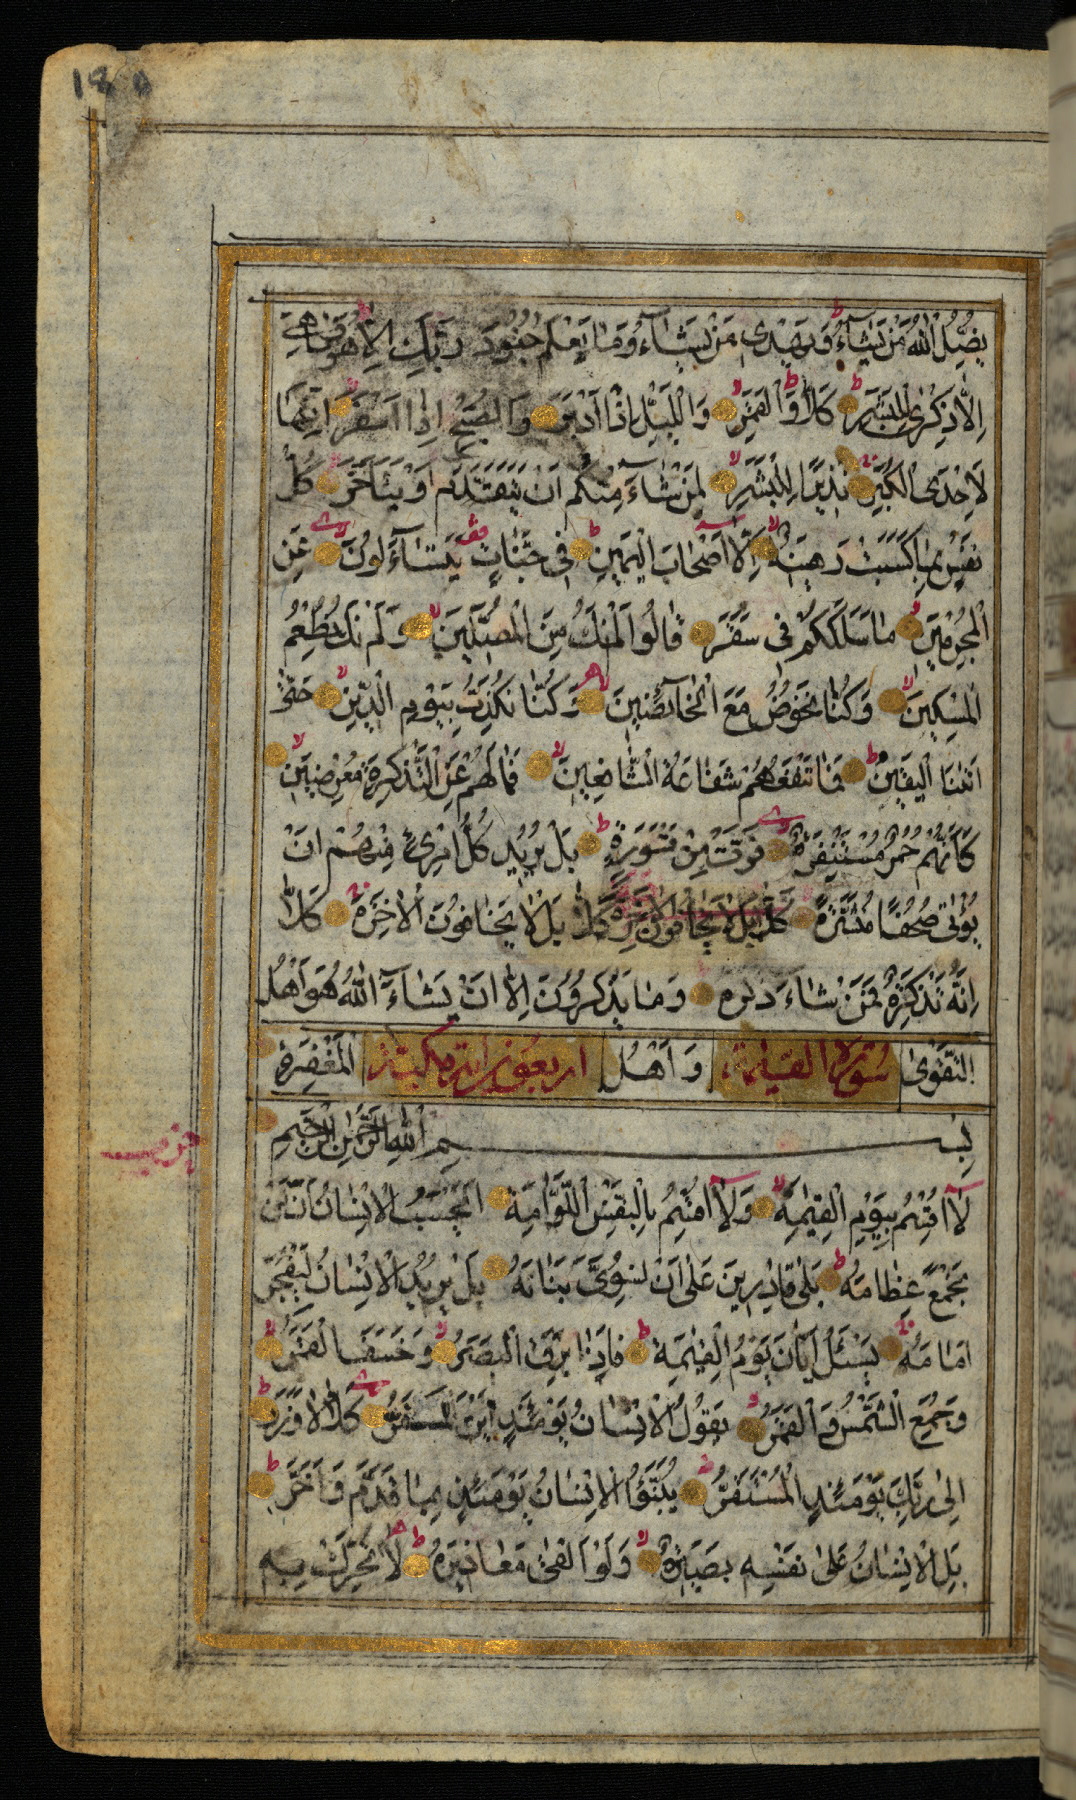 180
يُضِلُّ اللهُ مَنْ يَشَآءُ وَيَهْدِى مَنْ يَشَآءُ وَمَا يَعْلَمُ جُنُودَ رَبِّكَ اِلَّا هُوَ وَمَا هِىَ
اِلَّا ذِكْرٰى لِلْبَشَرِ كَلَّا وَالْقَمَرِ وَالَّيْلِ اِذْ اَدْبَرَ وَالصُّبْحِ اِذَا اَسْفَرَ اِنَّهَا
لَاِحْدَى الْكُبَرِ نَذِيرًا لِلْبَشَرِ لِمَنْ شَآءَ مِنْكُمْ اَنْ يَتَقَدَّمَ اَوْ يَتَاَخَّرَ كُلُّ
نَفْسٍ بِمَا كَسَبَتْ رَهِينَةٌ اِلَّا اَصْحَابَ الْيَمِينِ فِى جَنَّاتٍ يَتَسَآءَلُونَ عَنِ
الْمُجْرِمِينَ مَا سَلَكَكُمْ فِى سَقَرَ قَالُوا لَمْ نَكُ مِنَ الْمُصَلِّينَ وَلَمْ نَكُ نُطْعِمُ
الْمِسْكِينَ وَكُنَّا نَخُوضُ مَعَ الْخَآئِضِينَ وَكُنَّا نُكَذِّبُ بِيَوْمِ الدِّينِ حَتّٰى
اَتٰنَا الْيَقِينُ فَمَا تَنْفَعُهُمْ شَفَاعَةُ الشَّافِعِينَ فَمَا لَهُمْ عَنِ التَّذْكِرَةِ مُعْرِضِينَ
كَاَنَّهُمْ حُمُرٌ مُسْتَنْفِرَةٌ فَرَّتْ مِنْ قَسْوَرَةٍ بَلْ يُرِيدُ كُلُّ امْرِئٍ مِنْهُمْ اَنْ
يُؤْتٰى صُحُفًا مُنَشَّرَةً كَلَّا بَلْ لَا يَخَافُونَ الْاٰخِرَةَ كَلَّا بَلْ لَا يَخَافُونَ الْاٰخِرَةَ كَلَّا
اِنَّهُ تَذْكِرَةٌ فَمَنْ شَآءَ ذَكَرَهُ وَمَا يَذْكُرُونَ اِلَّا اَنْ يَشَآءَ اللهُ هُوَ اَهْلُ
التَّقْوٰى سُورَةُ الْقِيٰمَة وَاَهْلُ اربعون اية مكية الْمَغْفِرَةِ
بِسْمِ اللهِ الرَّحْمٰنِ الرَّحِيمِ
حزب
لَا اُقْسِمُ بِيَوْمِ الْقِيٰمَةِ وَلَا اُقْسِمُ بِالنَّفْسِ اللَّوَّامَةِ اَيَحْسَبُ الْاِنْسَانُ اَلَّنْ
نَجْمَعَ عِظَامَهُ بَلٰى قَادِرِينَ عَلٰى اَنْ نُسَوِّىَ بَنَانَهُ بَلْ يُرِيدُ الْاِنْسَانُ لِيَفْجُرَ
اَمَامَهُ يَسْئَلُ اَيَّانَ يَوْمُ الْقِيٰمَةِ فَاِذَا بَرِقَ الْبَصَرُ وَخَسَفَ الْقَمَرُ
وَجُمِعَ الشَّمْسُ وَالْقَمَرُ يَقُولُ الْاِنْسَانُ يَوْمَئِذٍ اَيْنَ الْمَفَرُّ كَلَّا لَا وَزَرَ
اِلٰى رَبِّكَ يَوْمَئِذٍ الْمُسْتَقَرُّ يُنَبَّؤُا الْاِنْسَانُ يَوْمَئِذٍ بِمَا قَدَّمَ وَاَخَّرَ
بَلِ الْاِنْسَانُ عَلٰى نَفْسِهِ بَصِيرَةٌ وَلَوْ اَلْقٰى مَعَاذِيرَهُ لَا تُحَرِّكْ بِهِ